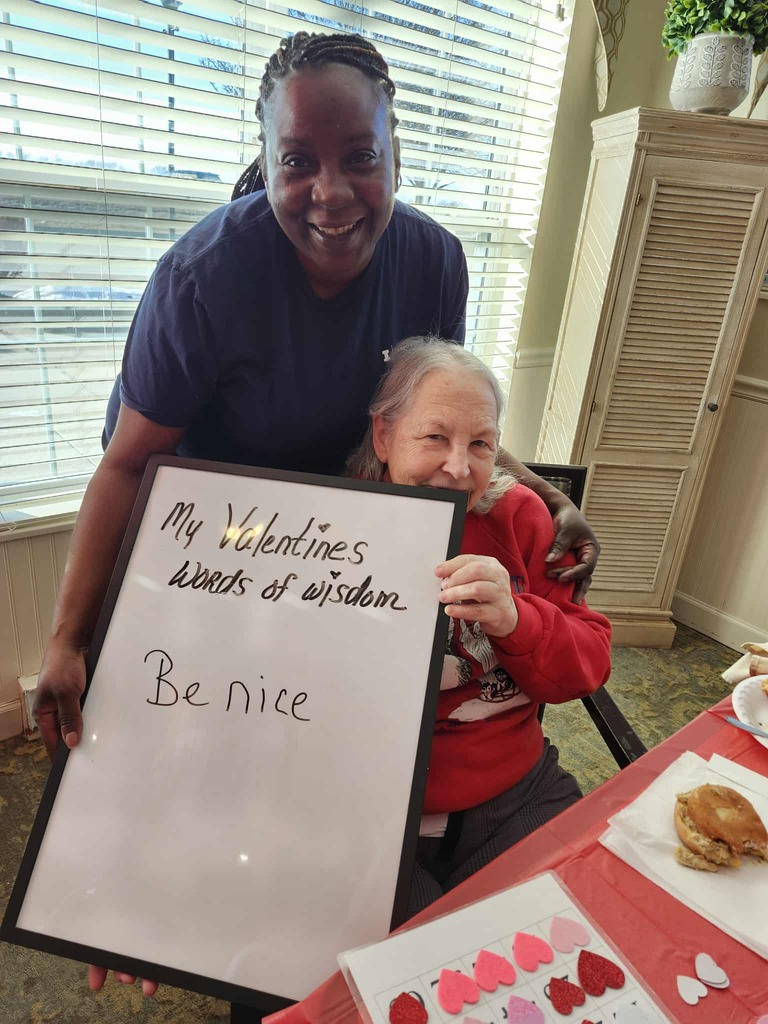 My Valentines
Words of wisdom
Be nice